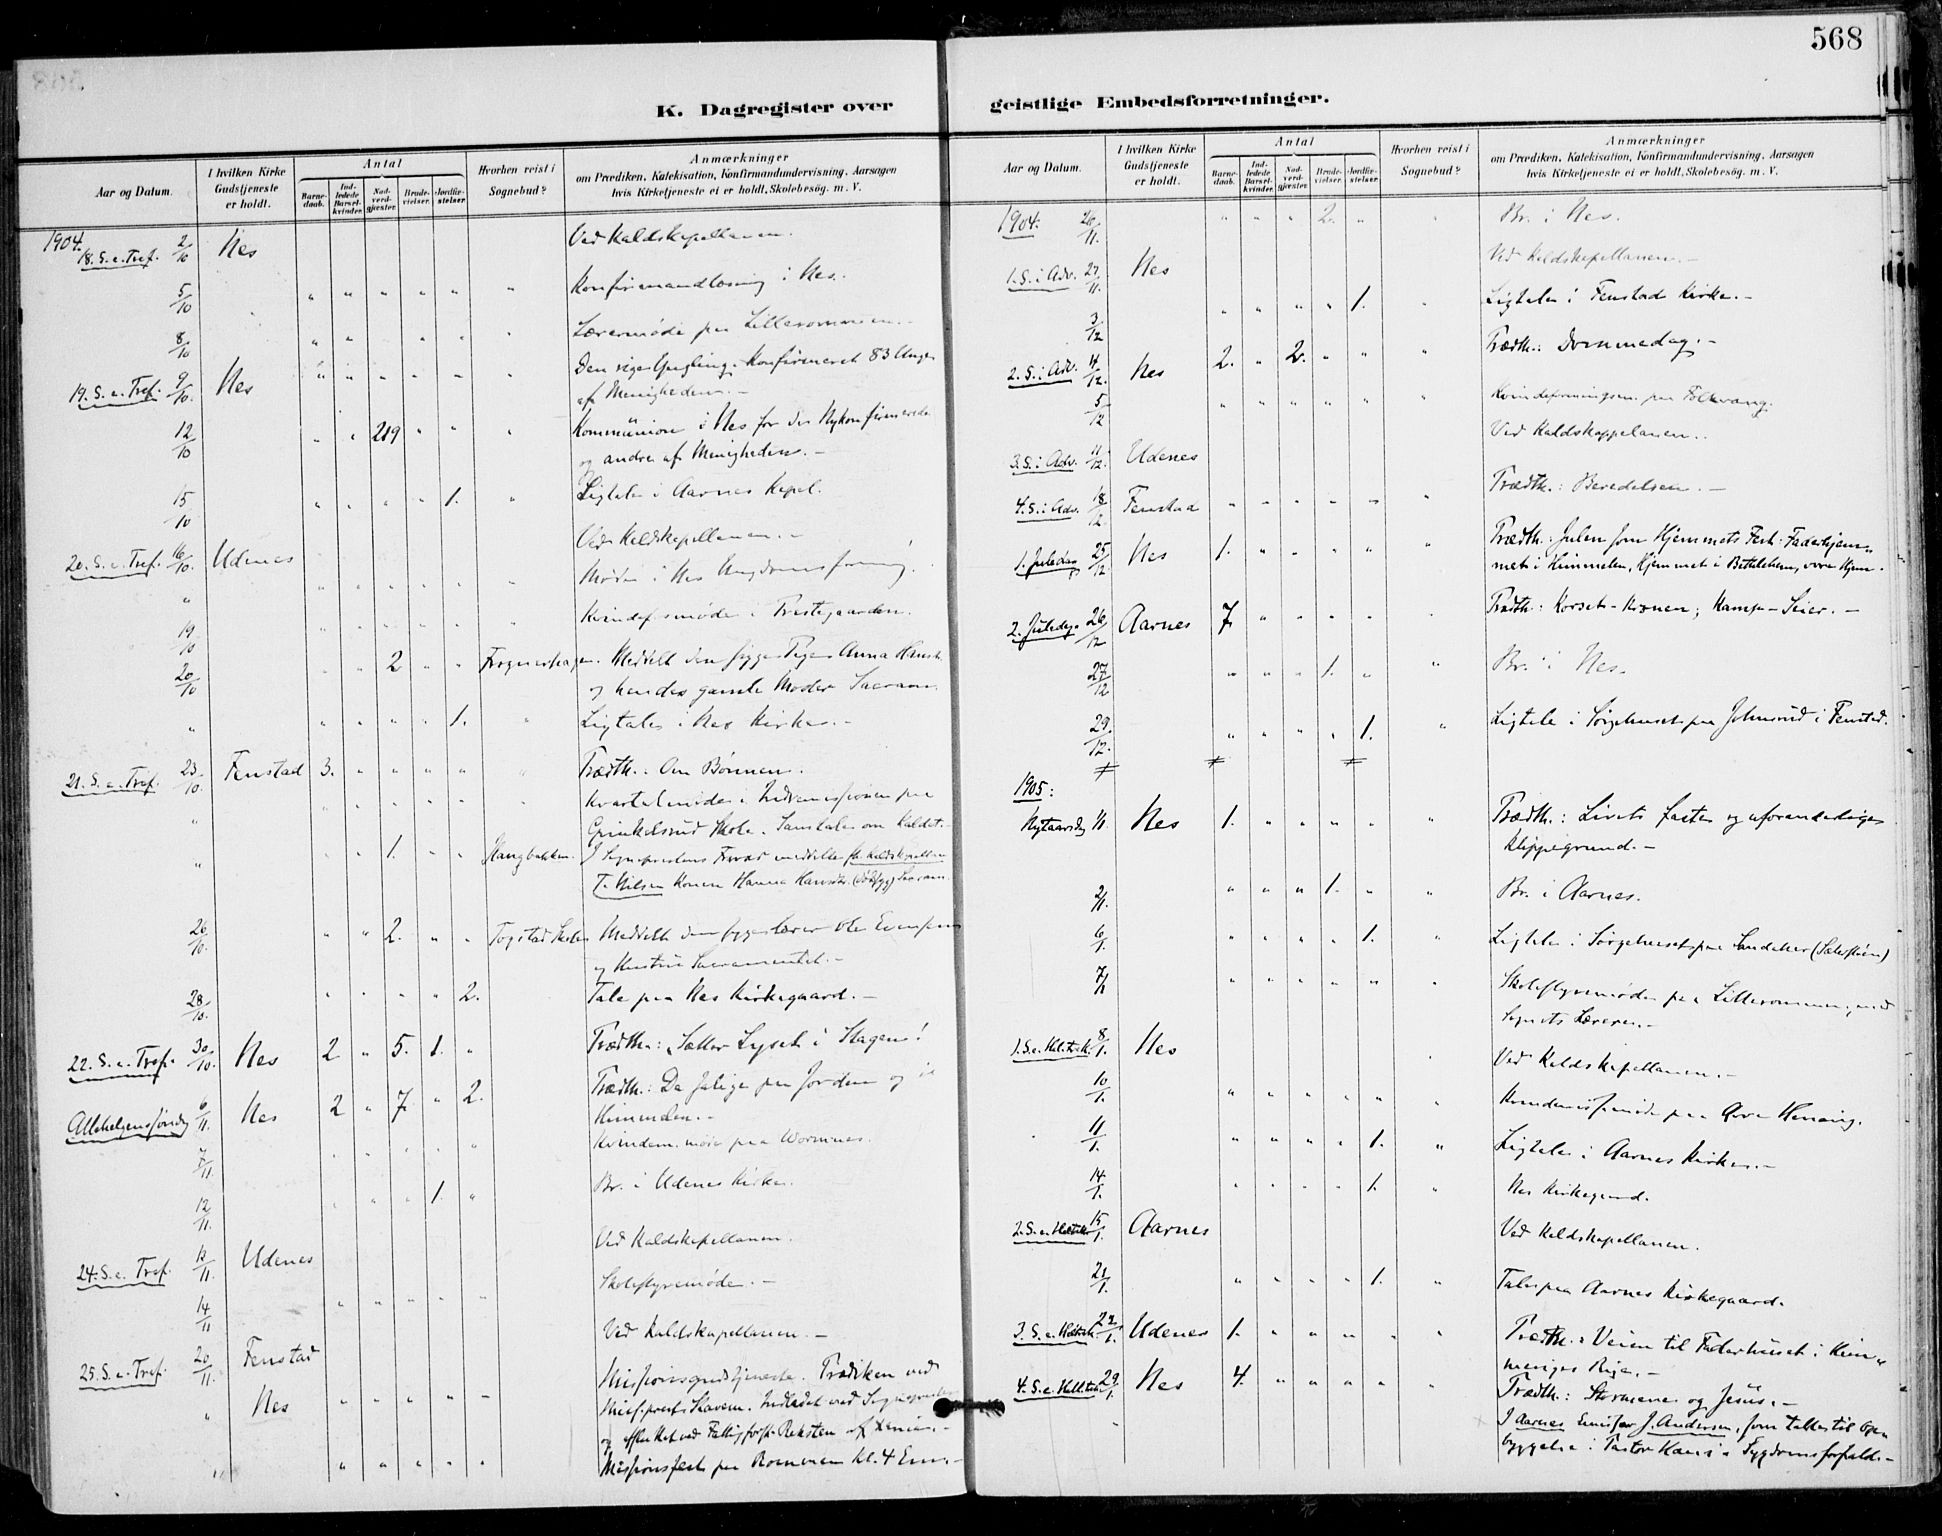 568
K. Dagregister over geistlige Embedsforretninger.
Aar og Datum.
I hvilken Kirke Gudstjeneste er holdt.
Antal
Barnedaab.
Indledede Barselkvinder.
Nadverdgjæster.
Brudevielser.
Jordfæstelser.
Hvorhen reist i Sognebud?
Anmærkninger
om Prædiken, Katekisation, Konfirmandundervisning, Aarsagen
hvis Kirketjeneste ei er holdt, Skolebesøg. m. V.
1904.
18. S. e. Tref. 2/10 Nes Ved Kaldskapellanen.
5/10 " " " " " " Konfirmandlæsning i Nes.
8/10 " " " " " Læremøde paa Lillerommen.
19. S. e. Tref. 9/10 Nes " " " " " " Den rige Yngling. Konfirmeret 83 Unge
af Menigheden.-
12/10 " " 219 " " " Kommunion i Nes for de Nykonfirmerede
og andre af Menigheden.-
15/10 " " " " 1. " Ligtale i Aarnes Kapel.
20. S. e. Tref. 16/10 Udenes Ved Kaldskapellanen.-
" Møde i Nes Ungdomsforening.
19/10 Kvindefsmøde i Præstegaarden.
20/10 " " 2 " " Frognerhagen. Meddelt den syge Pige Anna Hansd.
og hendes gamle Moder Sacram.
" " " " " 1. " Ligtale i Nes Kirke.-
21. S. e. Tref. 23/10 Fenstad 3. " " " " " Prædth.: Om Bønnen.
" Kvartalmøde i Indremissionen paa
Grinkelsrud Skole. Samtale om Kaldet.-
" " " 1. " " Haugbakken. I Sognepræstens Fravær meddelte Hr. Kaldskapellan
T. Nilsen Konen Hanna Hansdr. (dødssyg) Sacram.
26/10. " " 2. " " Togstad Skole Meddelt den syge Lærer Ole Evensen
og Hustru Sacramentet.-
28/10. " " " " 2. Tale paa Nes Kirkegaard.-
22. S. e. Tref. 30/10. Nes 2 " 5. 1. " Prædth.: Sætter Lyset i Stagen!
Allehelgenssønda 6/11. Nes 2 " 7. " 2. Prædth.: De salige paa Jorden og i
Himmelen.-
7/11 Kvindem.møde paa Wormnes.
12/11. " " " 1. " Br. i Udenes Kirke.
24. S. e. Tref. 13/11. Udenes Ved Kaldskapellanen.
14/11 " " " " " Skolestyremøde.-
25. S. e. Tref. 20/11. Fenstad Ved Kaldskapellanen.-
" Nes " " " " - Missionsgudstjeneste. Prædiken ved
Miss.præst Skaven. Indledet ved Sognepræsten
og afsluttet ved Fattigforst. Reksten af Xenia.-
" " " " " Missionsfest paa Rommen Kl. 4 Em.-
1904. 26/11. " " " 2. " " Br. i Nes.
1. S. i Adv. 27/11. Nes Ved Kaldskapellanen.-
3/12 " " " " 1. " Ligtale i Fenstad Kirke.-
2. S. i Adv. 4/12. Nes 2. " 2. " " " Prædth.: Dommedag.-
5/12 " " " " " " Kvindeforeningsm. paa Folkvang.
3. S. i Adv. 11/12. Udenes Ved Kaldskappelanen..
4. S. i Adv. 18/12. Fenstad " " " " " " Prædth.: Beredelsen.-
1. Juledag 25/12. Nes 1. " " " " " Prædth.: Julen som Hjemmets Fest: Faderhjem-
met i Himmelen, Hjemmet i Bethlehem, vore Hjem.
2. Juledag 26/12 Aarnes 7. " " " " Prædth.: Korset-Kronen; Kamp-Seier.-
27/12 " " " 1. " " Br. i Nes.
29/12. " " " " 1. " Ligtale i Sørgehuset paa Johnsrud i Fenstad.
1905:
Nytaarsdg 1/1. Nes 1. " " " " " Prædth.: Livets faste og uforanderlige
Klippegrund.-
2/1. " " " 1. " " Br. i Aarnes.
6/1. " " " " 1. " Ligtale i Sørgehuset paa
7/1 " " " " " " Skolestyremøde paa Lillerommen, med
Sognets Lærere.-
1. S. e. Hel. tr. k. 8/1. Nes Ved Kaldskapellanen.-
10/1. " " " " " "
11/1. " " " " 1. " Ligtale i Aarnes Kirke.-
14/1. " " " " 1. " Nes Kirkegaard.
2. S. e. 15/1. Aarnes Ved Kaldskapellanen.
21/1. " " " " 1. " Tale paa Aarnes Kirkegaard.
3. S. e. 22/1. Udenes 1. " " " " " Prædth.: Veien til Faderhuset i Him-
meriges Rige.-
4. S. e. 29/1. Nes 4. " " " " " Prædth.: Stormene og Jesus.-
I Aarnes Emissær J. Andersen, som talte til Op-
byggelse i Pastor Sygdomsforfald.-